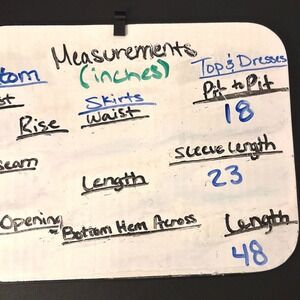 Measurements
(inches)
tom
Rise
seam
Opening
Skirts
Waist
Length
Bottom Hem Across
Top & Dresses
Pit to Pit
18
Sleeve Length
23
Length
48